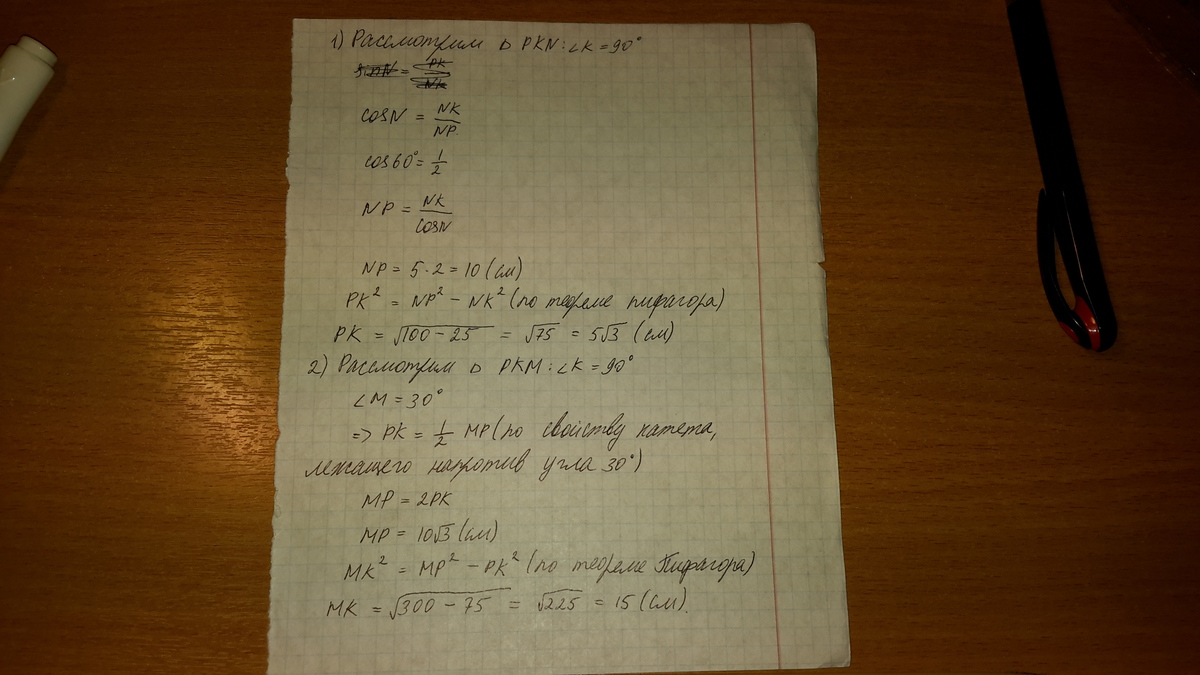 1) Рассмотрим ▷ PKN: ∠K = 90°
sinN = PK/NK
cosN = NK/NP
cos60° = 1/2
NP = NK/cosN
NP = 5 · 2 = 10 (см)
PK² = NP² − NK² (по теореме пифагора)
PK = √100 − 25 = √75 = 5√3 (см)
2) Рассмотрим ▷ PKM: ∠K = 90°
∠M = 30°
=> PK = 1/2 MP (по свойству катета,
лежащего напротив угла 30°)
MP = 2PK
MP = 10√3 (см)
MK² = MP² − PK² (по теореме Пифагора)
MK = √300 − 75 = √225 = 15 (см).